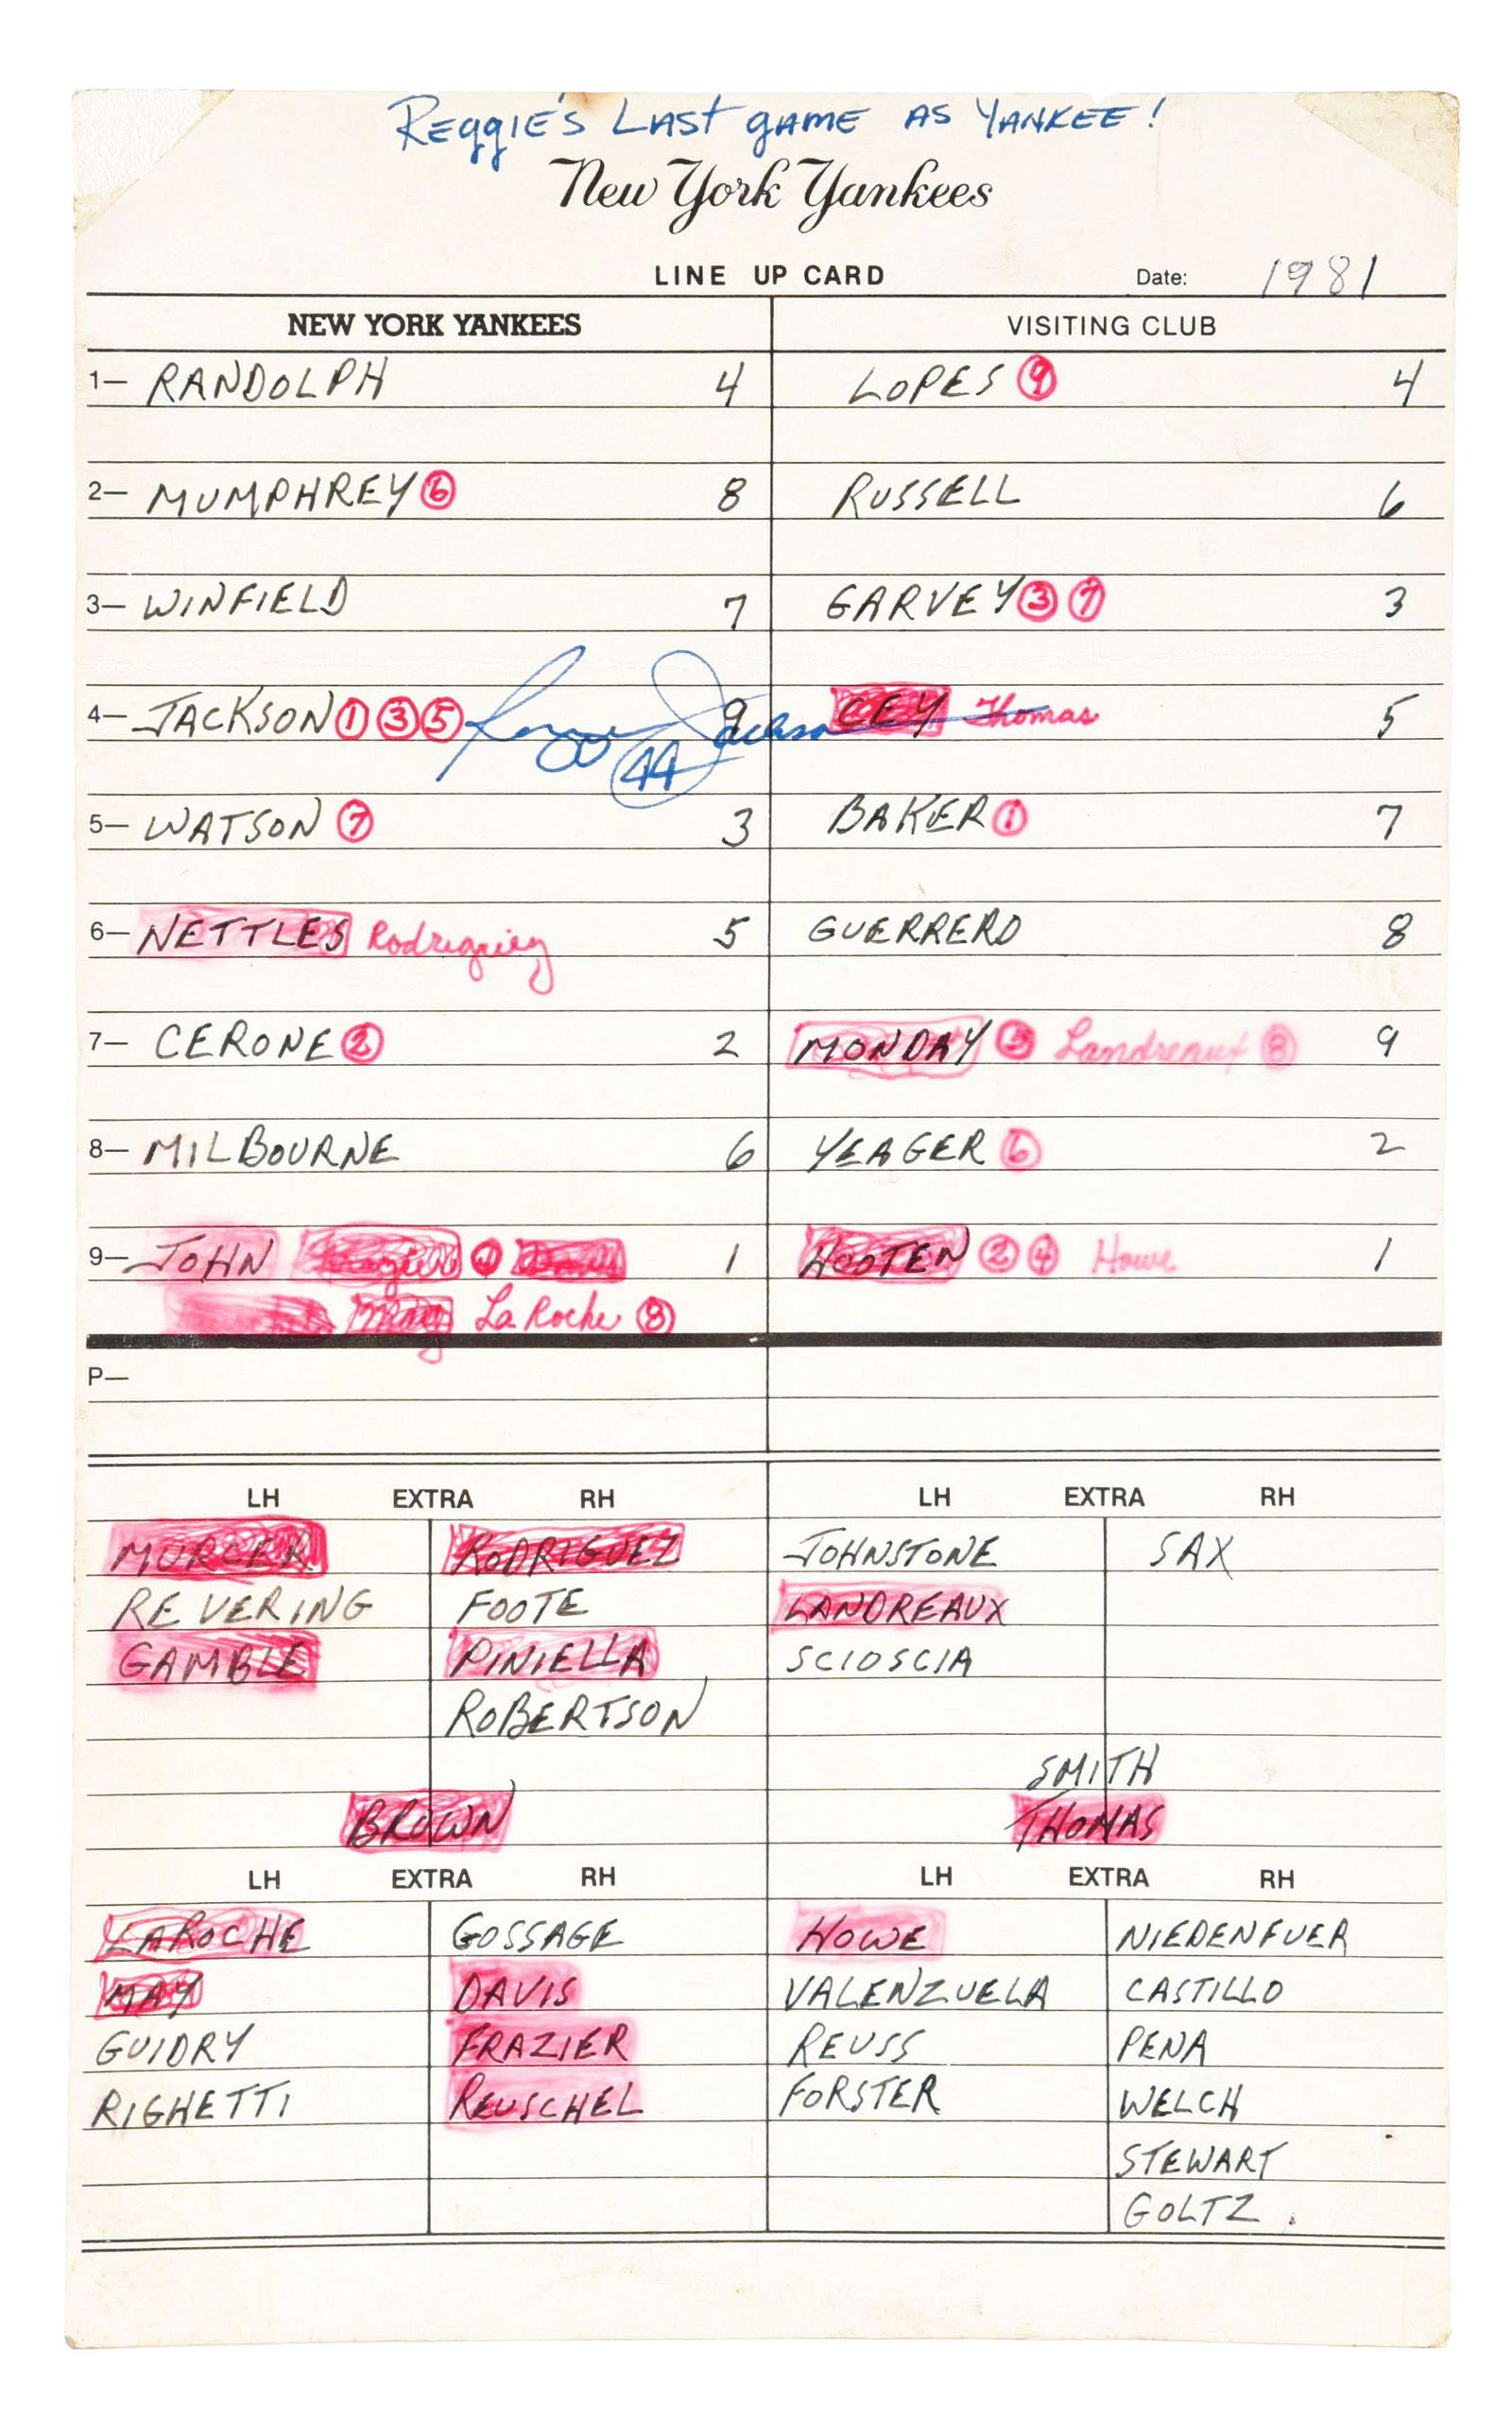 REGGIE'S LAST GAME AS YANKEE!
New York Yankees
LINE UP CARD Date: 1981
NEW YORK YANKEES VISITING CLUB
1— RANDOLPH 4 LOPES 9 4
2— MUMPHREY 6 8 RUSSELL 6
3— WINFIELD 7 GARVEY 3 7 3
4— JACKSON 1 3 5 Reggie Jackson 44 9 CEY Thomas 5
5— WATSON 7 3 BAKER 1 7
6— NETTLES Rodriguiez 5 GUERRERO 8
7— CERONE 2 2 MONDAY Landreaux 8 9
8— MILBOURNE 6 YEAGER 6 2
9— JOHN Frazier 1 HOOTEN 2 4 Howe 1
May La Roche 8
P—
LH EXTRA RH LH EXTRA RH
MURCER RODRIGUEZ JOHNSTONE SAX
REVERING FOOTE LANDREAUX
GAMBLE PINIELLA SCIOSCIA
ROBERTSON
SMITH
BROWN THOMAS
LH EXTRA RH LH EXTRA RH
LAROCHE GOSSAGE HOWE NIEDENFUER
MAY DAVIS VALENZUELA CASTILLO
GUIDRY FRAZIER REUSS PENA
RIGHETTI REUSCHEL FORSTER WELCH
STEWART
GOLTZ.